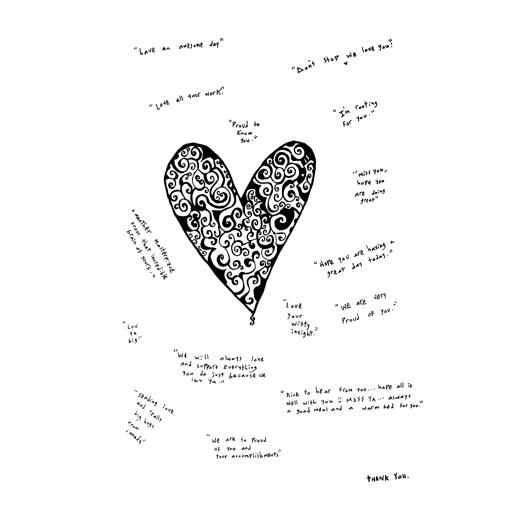 "have an awesome day"
"Don't stop we love you!"
"Love all your work."
"I'm rooting
for you."
"Proud to
know
you."
"miss you,
hope you
are doing
great"
"another masterpiece
from that incredible
brain of yours..."
"Hope you are having a
great day today."
"Love
your
witty
insight."
"we are very
proud of you."
"Luv
ya
big"
"We will always love
and support everything
you do just because we
luv ya..."
"Nice to hear from you... hope all is
well with you !! MISS YA... always
a good meal and a warm bed for you."
"sending love
and really
big hugs
from
Canada"
"We are so proud
of you and
your accomplishments"
THANK YOU.